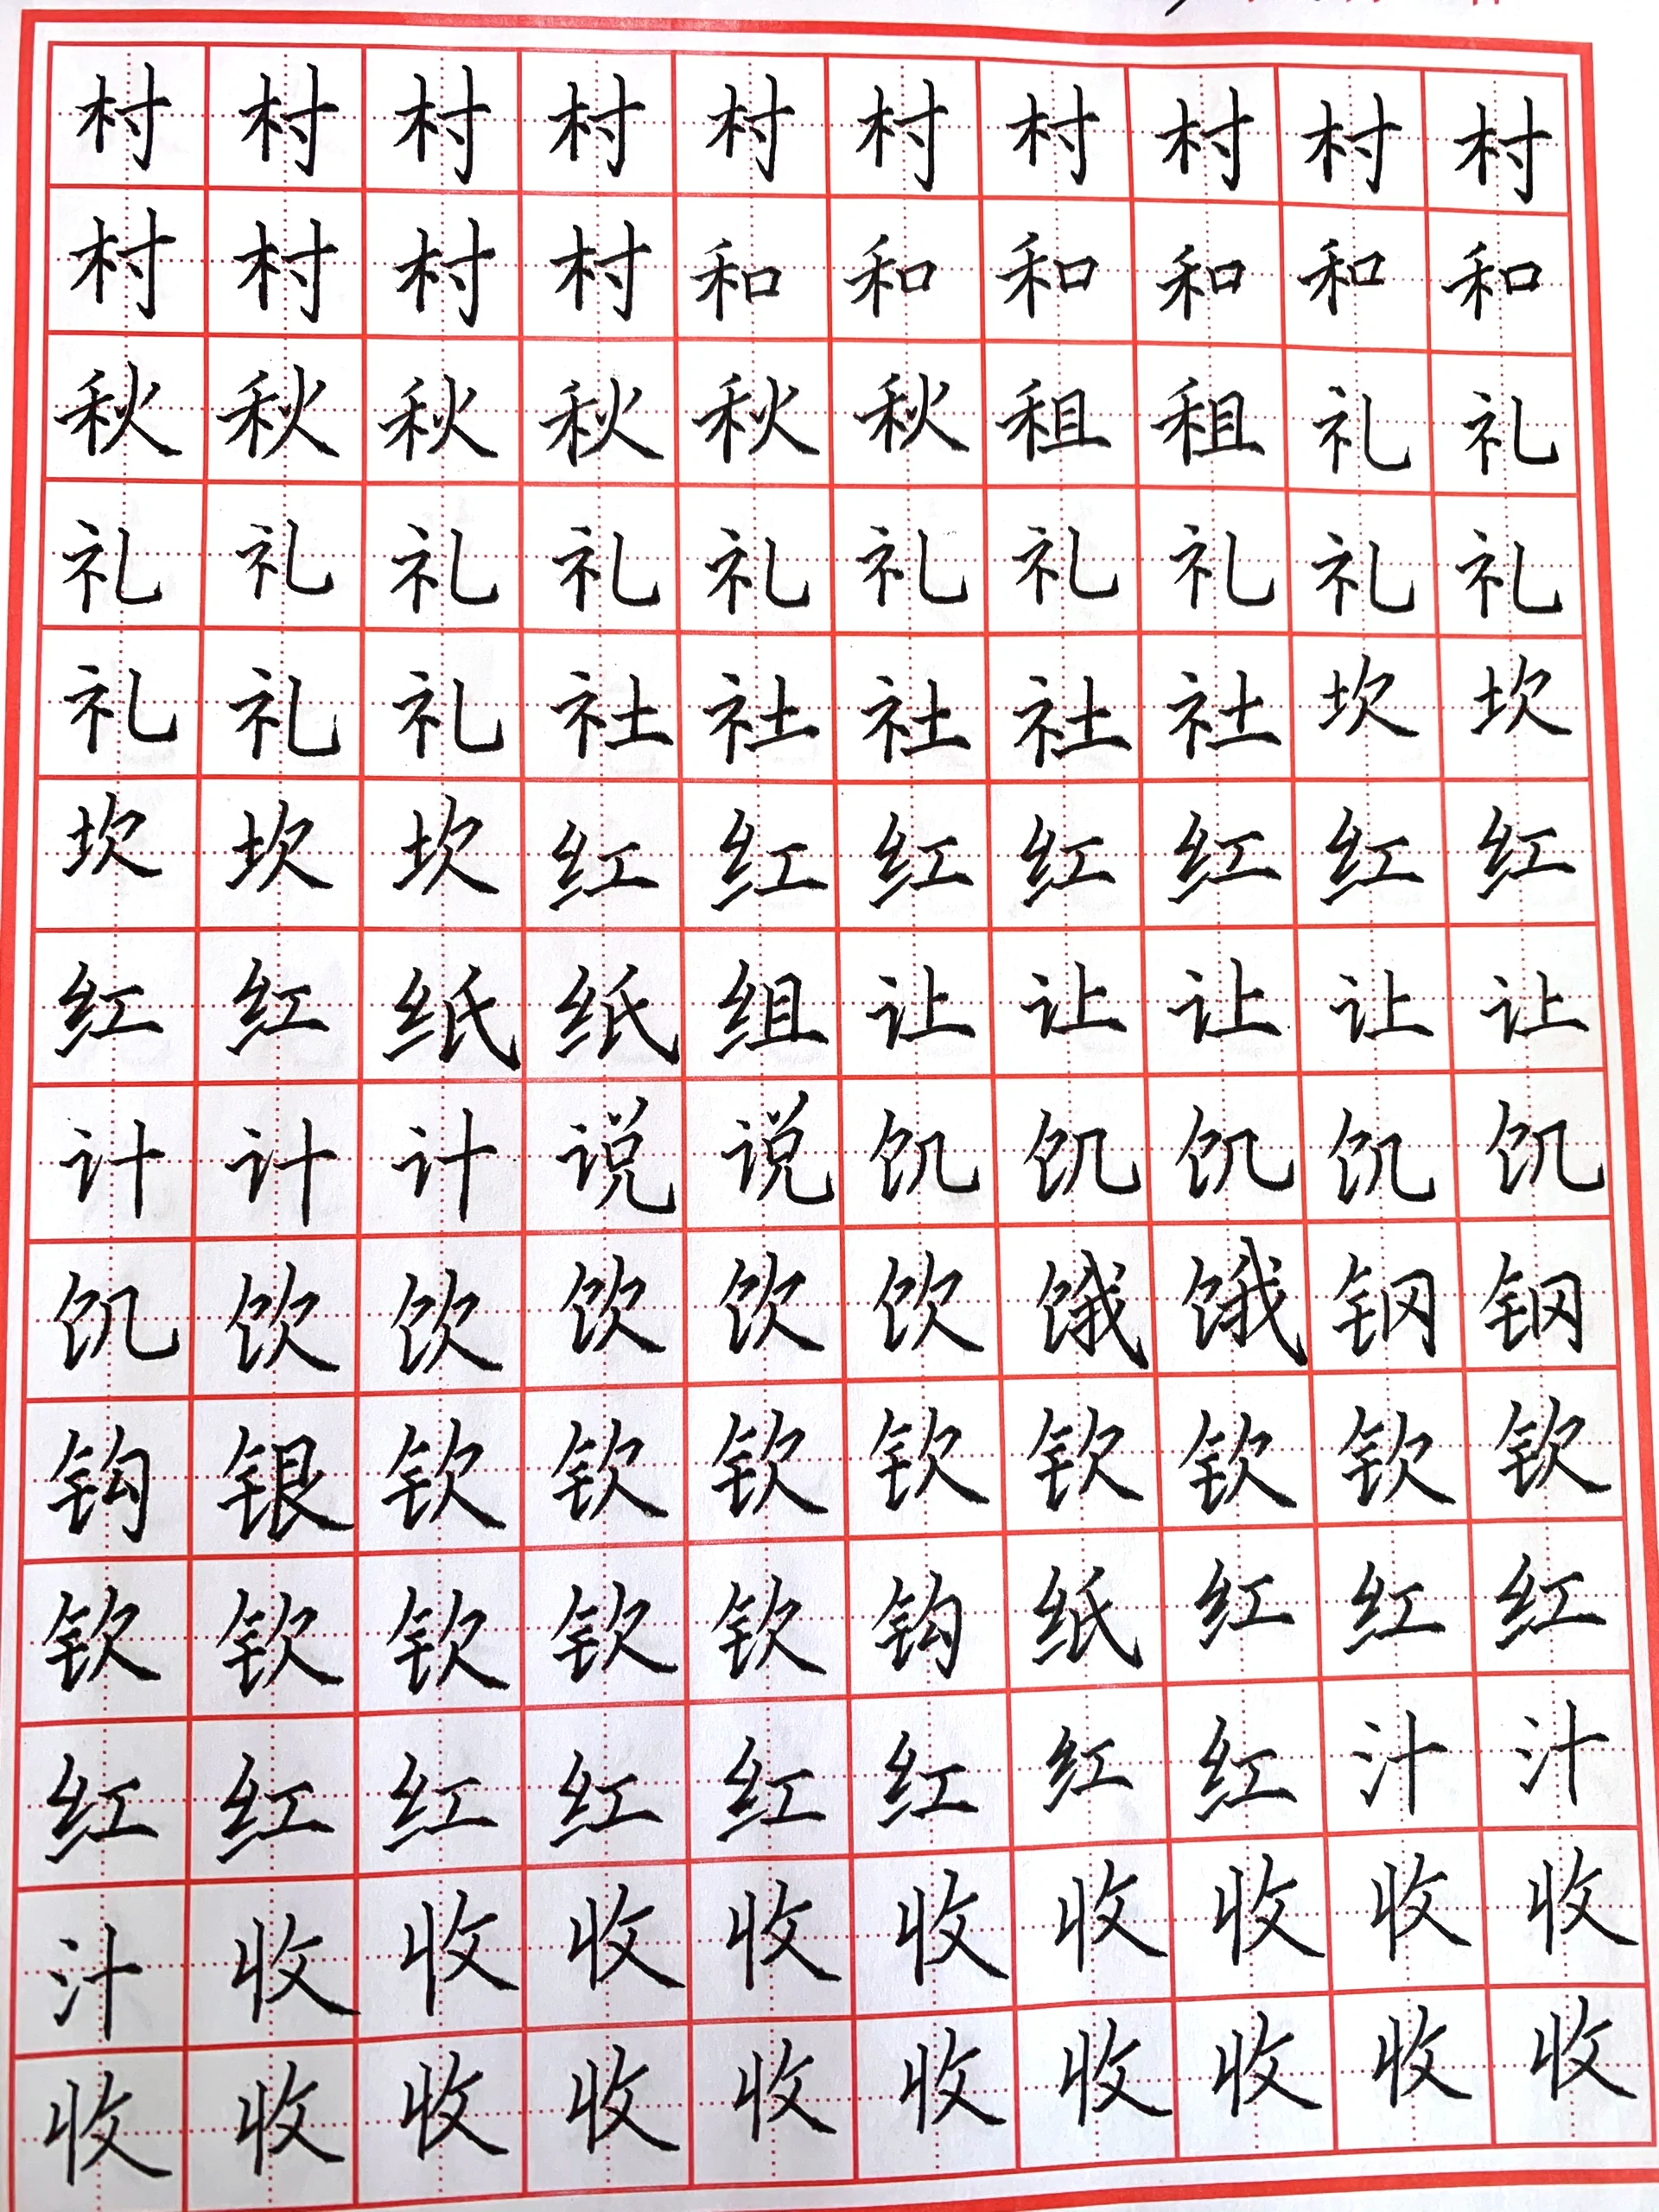 村村村村村村村村村村
村村村村和和和和和和
秋秋秋秋秋秋租租礼礼
礼礼礼礼礼礼礼礼礼礼
礼礼礼社社社社社坎坎
坎坎坎红红红红红红红
红红纸纸组让让让让让
计计计说说饥饥饥饥饥
饥饮饮饮饮饮饿饿钢钢
钩银钦钦钦钦钦钦钦钦
钦钦钦钦钦钩纸红红红
红红红红红红红红汁汁
汁收收收收收收收收收
收收收收收收收收收收